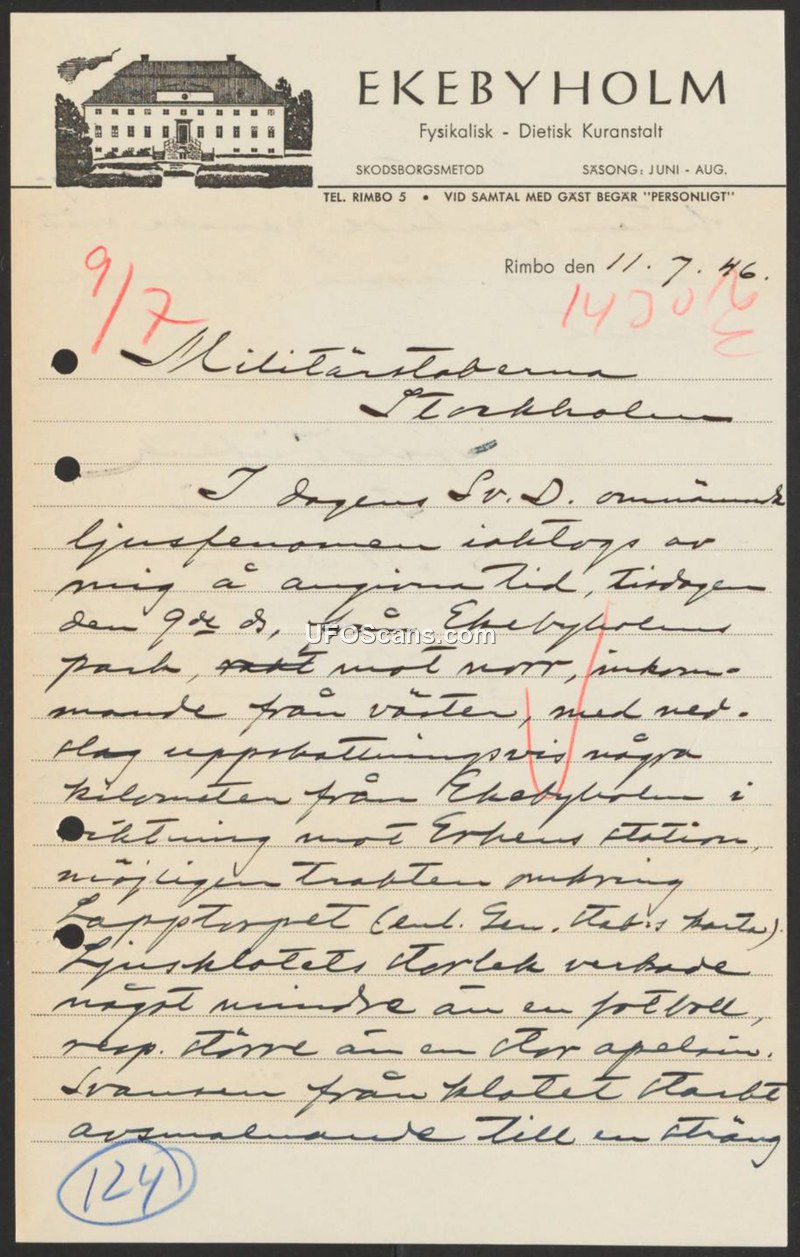 EKEBYHOLM
Fysikalisk - Dietisk Kuranstalt
SKODSBORGSMETOD SÄSONG: JUNI - AUG.
TEL. RIMBO 5 • VID SAMTAL MED GÄST BEGÄR "PERSONLIGT"
Rimbo den 11. 7. 46.
9/7
Militärstaberna
Stockholm
I dagens Sv. D. omnämnda
ljusfenomen iakttogs av
mig å angivna tid, tisdagen
den 9de ds, från Ekebyholms
park, mot norr, inkom-
mande från väster, med ned-
slag uppskattningsvis några
kilometer från Ekebyholm i
riktning mot Erkens station,
möjligen trakten omkring
Lapptorpet (enl. Gen. stab:s karta).
Ljusklotets storlek verkade
något mindre än en fotboll,
resp. större än en stor apelsin.
Svansen från klotet starkt
avsmalnande till en sträng
124
UFOScans.com